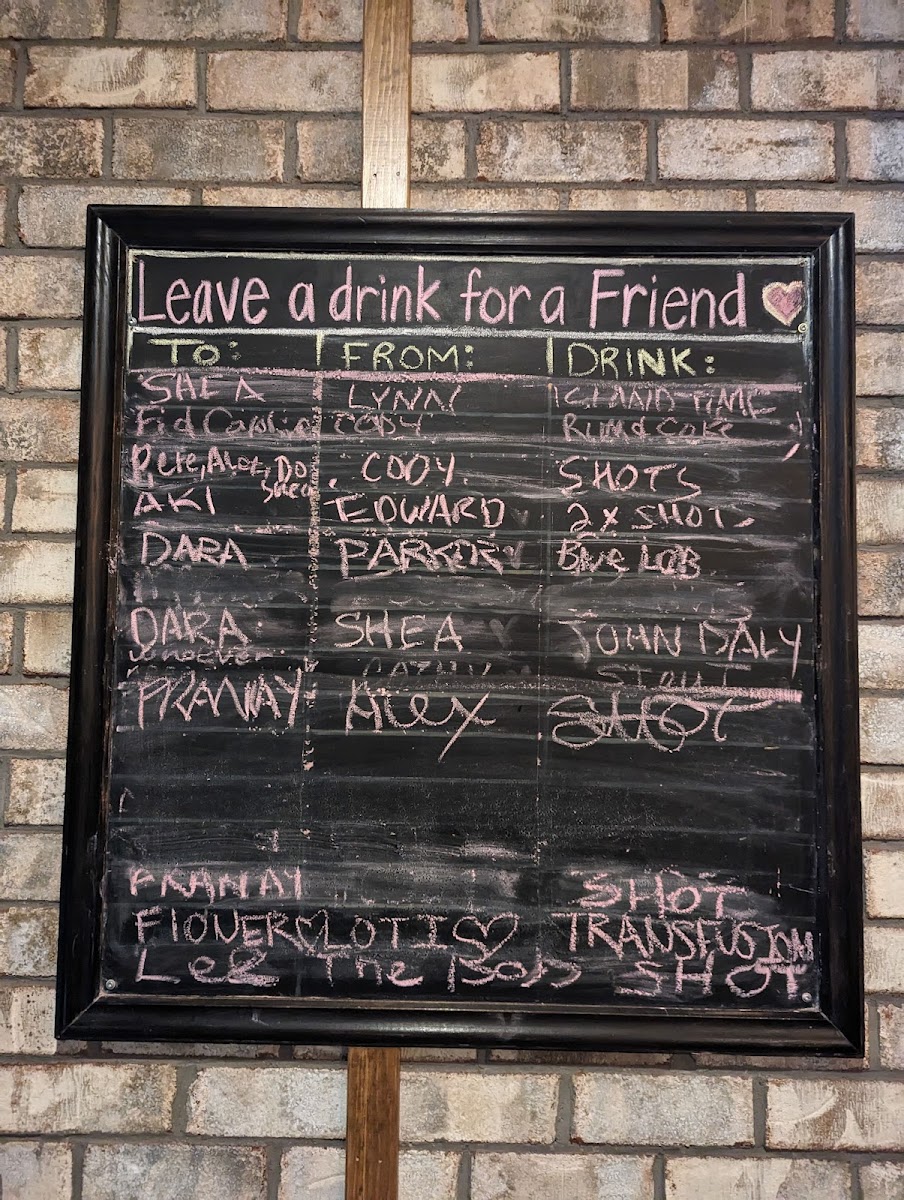 Leave a drink for a Friend
TO: FROM: DRINK:
SHEA LYNN ISLAND TIME
CODY Rum & Coke
Pete, Alex, Do CODY SHOTS
Shea
AKI EDWARD 2x SHOTS
DARA PARKER Blue LOB
DARA SHEA JOHN DALY
CATHY STOUT
PRANAY Alex SHOT
PRANAY SHOT
FIONER LOTIS TRANSFUSION
Lee The Bobs SHOT